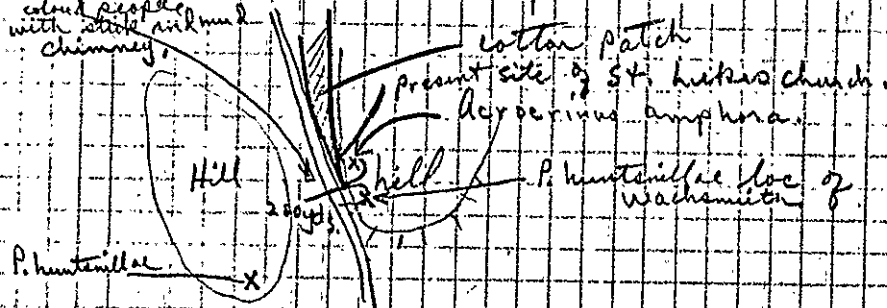 colored people
with stick and mud
chimney.
cotton patch
present site of St. Lukes church.
Acrocrinus amphora.
Hill
hill
P. huntsvillae loc of
Wachsmuth
200yds.
P. huntsvillae
X
X
X